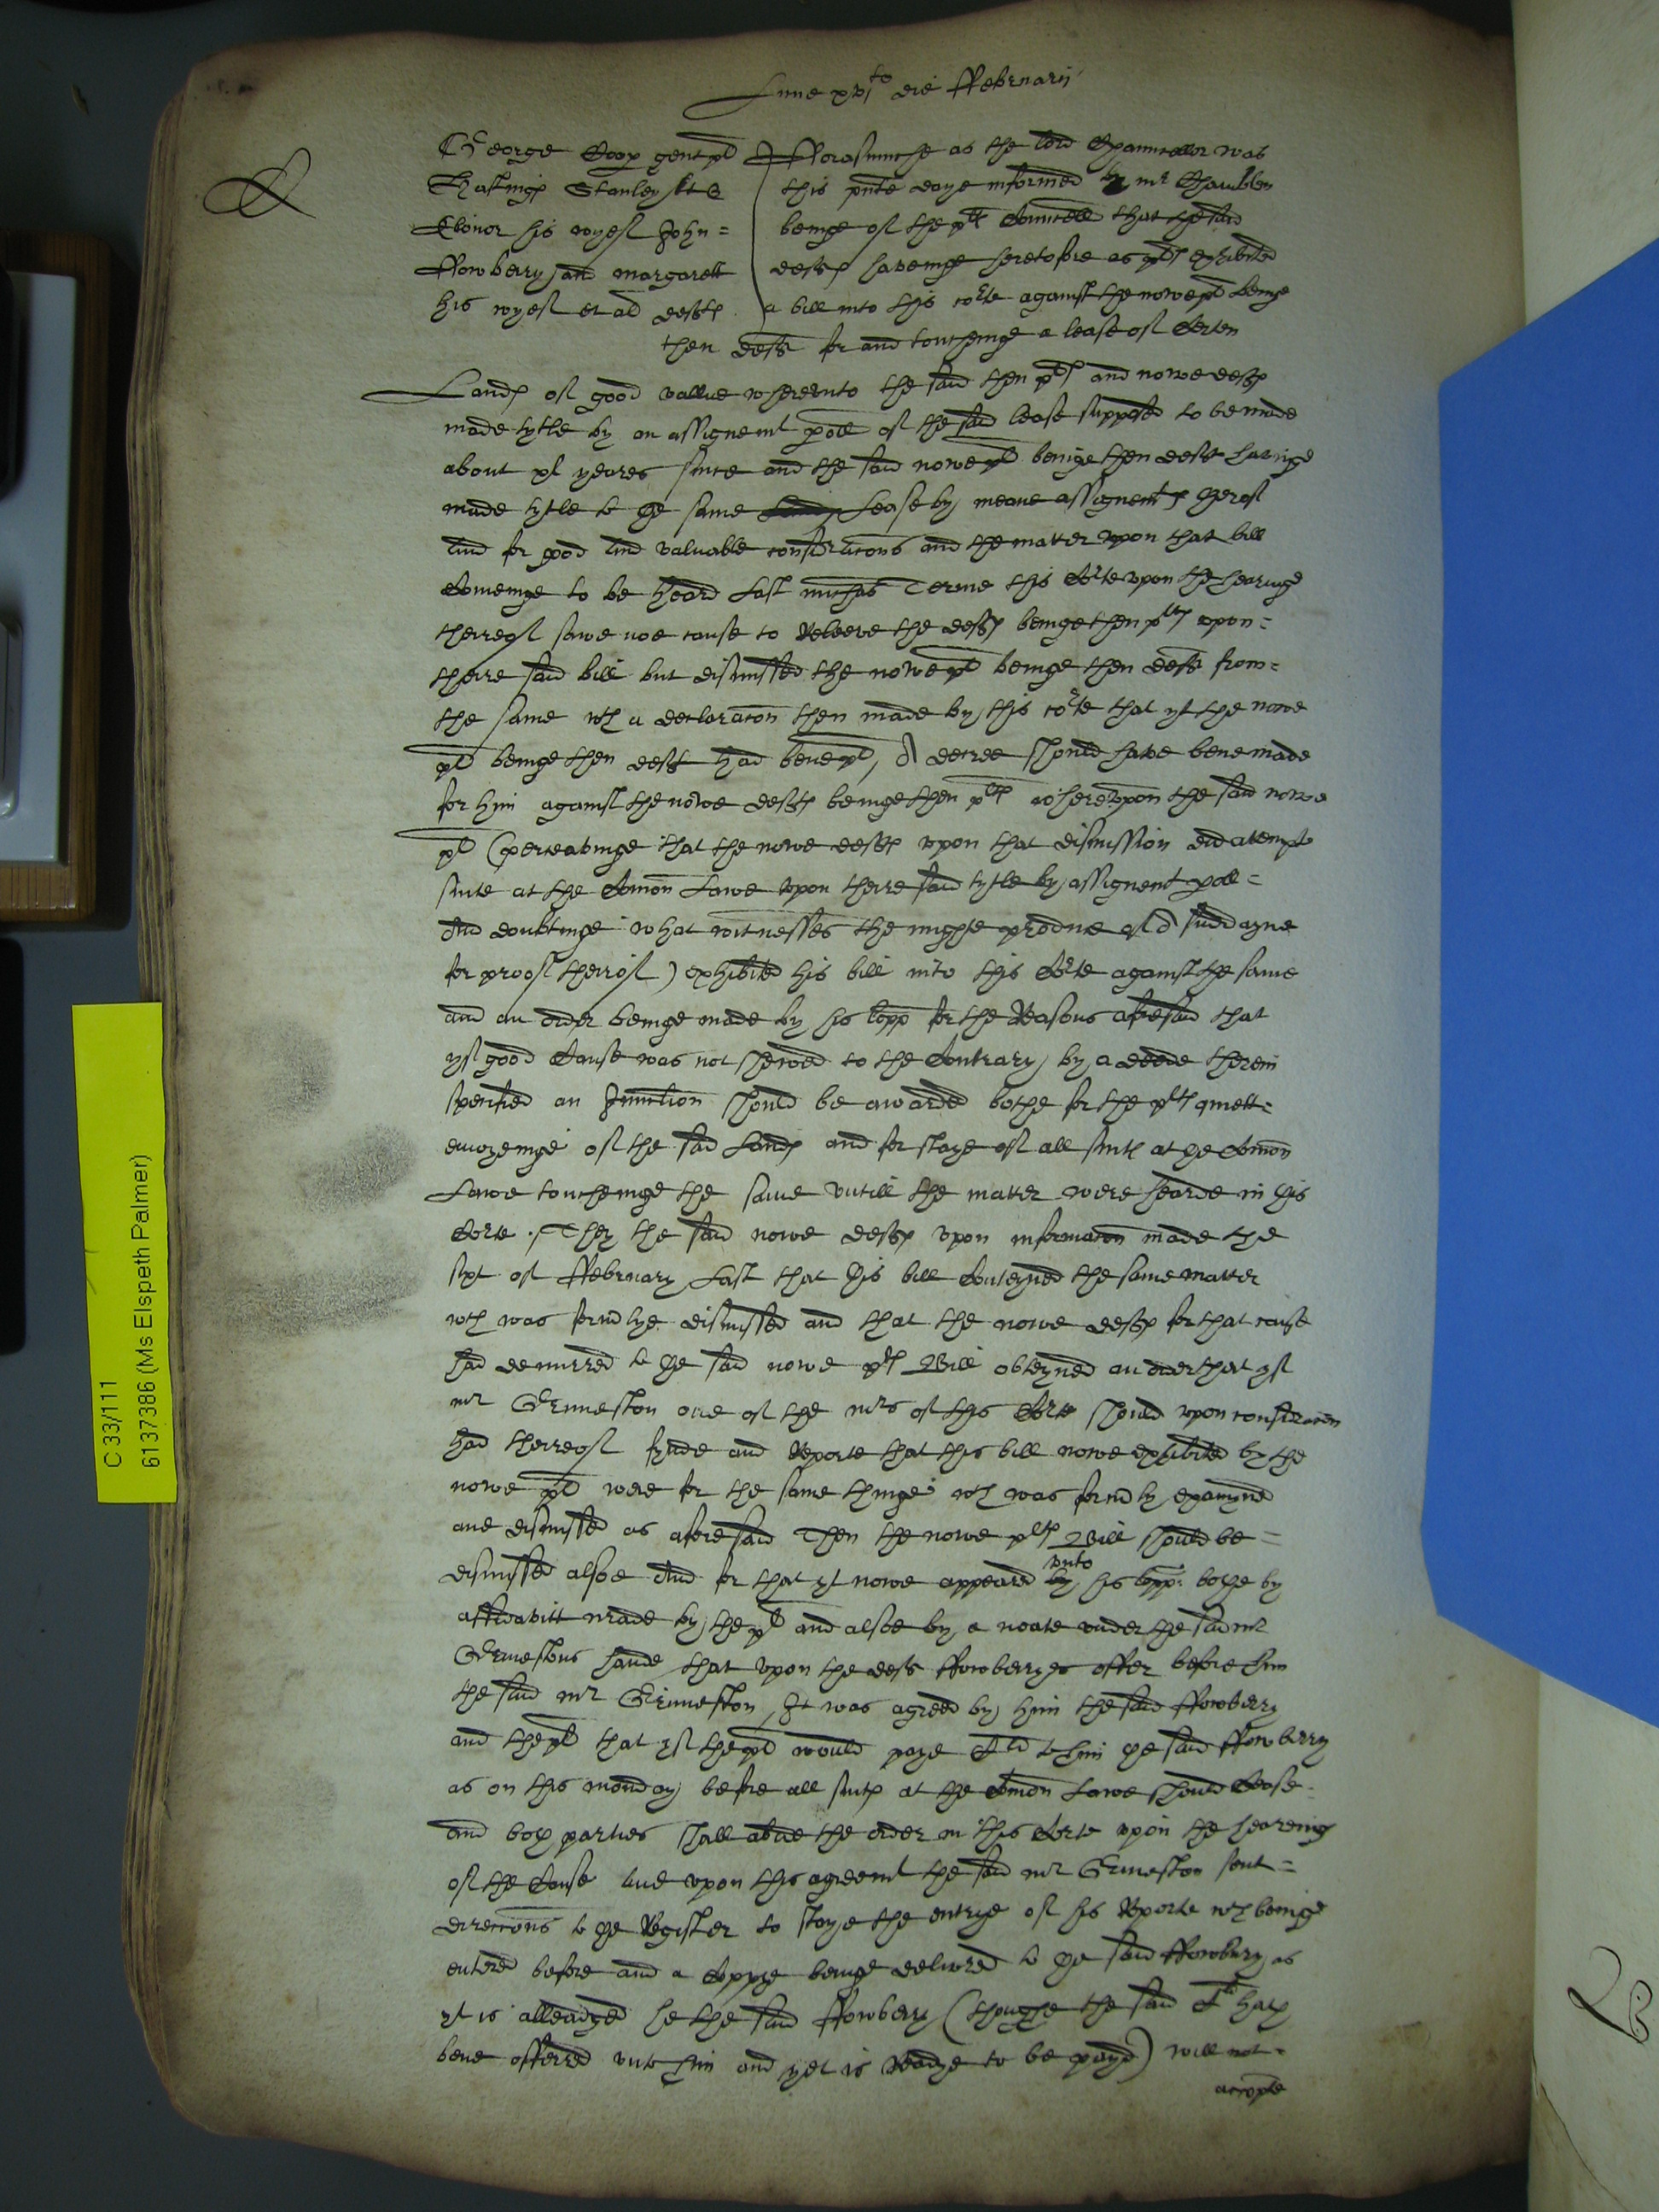 Lune xvjto die ffebruarij
George Coop gent pl
Hastinge Stanley kt &
Elionor his wyef John =
ffowberry and margarett
his wyef et al deftes
fforasmuche as the lord Chauncellor was
this pnte daye informed by mr Chamblen
beinge of the pltes Councell that the said
deftes haveinge heretofore as pltes exhibited
a bill into this corte against the nowe pl beinge
then deft for and toucheinge a lease of Certen
Landes of good vallue wherevnto the said then pltes and nowe deftes
made tytle by an assignemt poll of the said lease supposed to be made
about xl yeares since and the said nowe pl beinge then deft havinge
made tytle to the same Lease by meane assignemtes therof
And for good and valuable consideracons and the matter vpon that bill
Comeinge to be heard Last michas Terme this Corte vpon the hearinge
thereof sawe noe cause to Releeve the deftes beinge then pltes vpon =
theire said bill but dismissed the nowe pl beinge then deft from =
the same wth a declaracon then made by this corte that yf the nowe
pl beinge then deft had bene pl, A decree should have bene made
for him against the nowe deftes beinge then pltes wherevpon the said nowe
pl (perceavinge that the nowe deftes vpon that dismission did attempte
suite at the Comon Lawe vpon theire said tytle by assignemt poll =
And doubtinge what witnesses the mighte produce of A suddayne
for proof therof) exhibited his bill into this Corte against the same
and an order beinge made by his lopp for the Reasons aforesaid that
yf good Cause was not shewed to the Contrary by a deede therein
specified an Iniunction should be awarded bothe for the pltes quiett =
enioyeinge of the said Landes and for staye of all suites at the Comon
Lawe toucheinge the same vntill the matter were hearde in this
Corte . They the said nowe deftes vpon informacon made the
sixt of ffebruary Last that this bill Conteyned the same matter
wch was formlye dismissed and that the nowe deftes for that cause
had demurred to the said nowe pltes Bill obteyned an order that yf
mr Grimeston one of the mrs of this Corte should vpon consideracon
had thereof fynde and Reporte that this bill nowe exhibited by the
nowe pl were for the same thinge wch was formly examyned
and dismissed as aforesaid Then the nowe pltes Bill should be =
dismissed alsoe And for that yt nowe appeared by vnto his lopp: bothe by
affidavitt made by the pl and alsoe by a noate vnder the said mr
Grimestons hande that vpon the deft ffowberryes offer before him
the said mr Grimeston, It was agreed by him the said ffowberry
and the pl that yf the pl would paye to him the said ffowberry
as on this monday before all suites at the Comon Lawe should Cease =
and both parties shall abide the order in this Corte vpon the heareing
of the Cause And vpon this agreemt the said mr Grimeston sent =
direccons to the Register to staye the entrye of his Reporte wch beinge
entered before and a Coppye beinge delivred to the said ffowbery as
yt is alleadged he the said ffowbery (thoughe the said hath
bene offerred vnto him and yet is Readye to be payd) will not =
accepte
C 33/111
6137386 (Ms Elspeth Palmer)